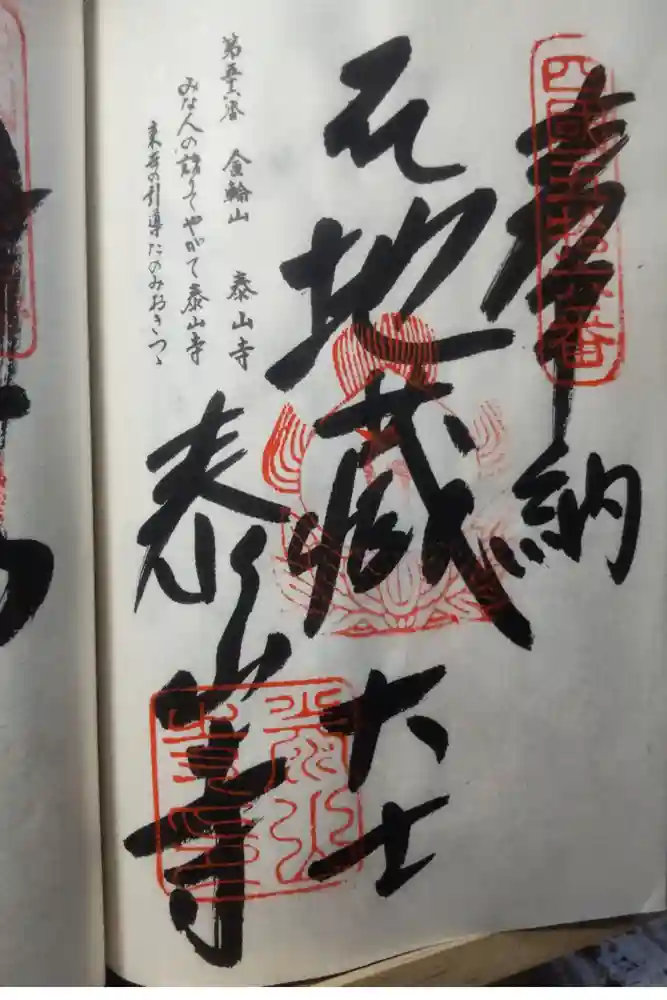 四國五十六番
奉納
地蔵大士
泰山寺
第五十六番 金輪山 泰山寺
みな人の詣りてやがて泰山寺
来世の引導たのみおきつゝ